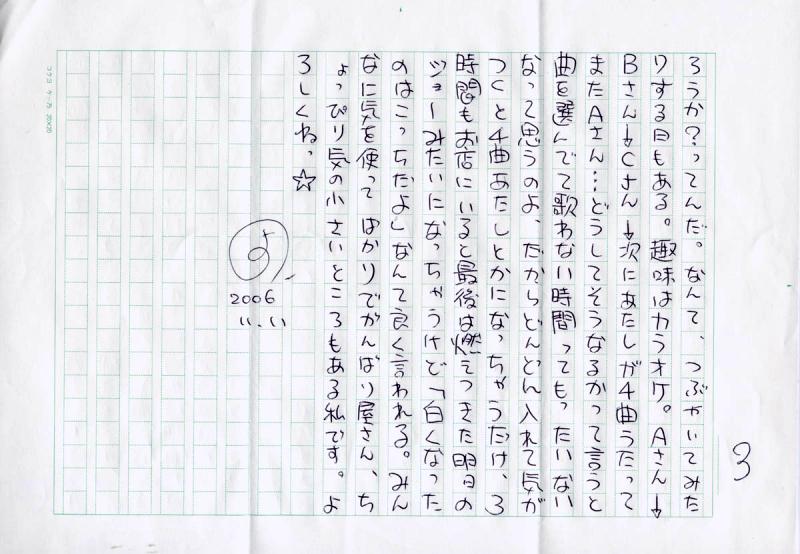 3
ろうか?ってんだ。なんて、つぶやいてみた
りする日もある。趣味はカラオケ。Aさん→
Bさん→Cさん→次にあたしが4曲うたって
またAさん…どうしてそうなるかって言うと
曲を選んでて歌わない時間ってもったいない
なって思うのよ、だからどんどん入れて気が
つくと4曲あたしとかになっちゃうだけ、3
時間もお店にいると最後は燃えつきた明日の
ジョーみたいになっちゃうけど「白くなった
のはこっちだよ」なんて良く言われる。みん
なに気を使ってばかりでがんばり屋さん、ち
ょっぴり気の小さいところもある私です。よ
ろしくねっ☆
よ
2006
11.11
コクヨ ケ-75 20×20